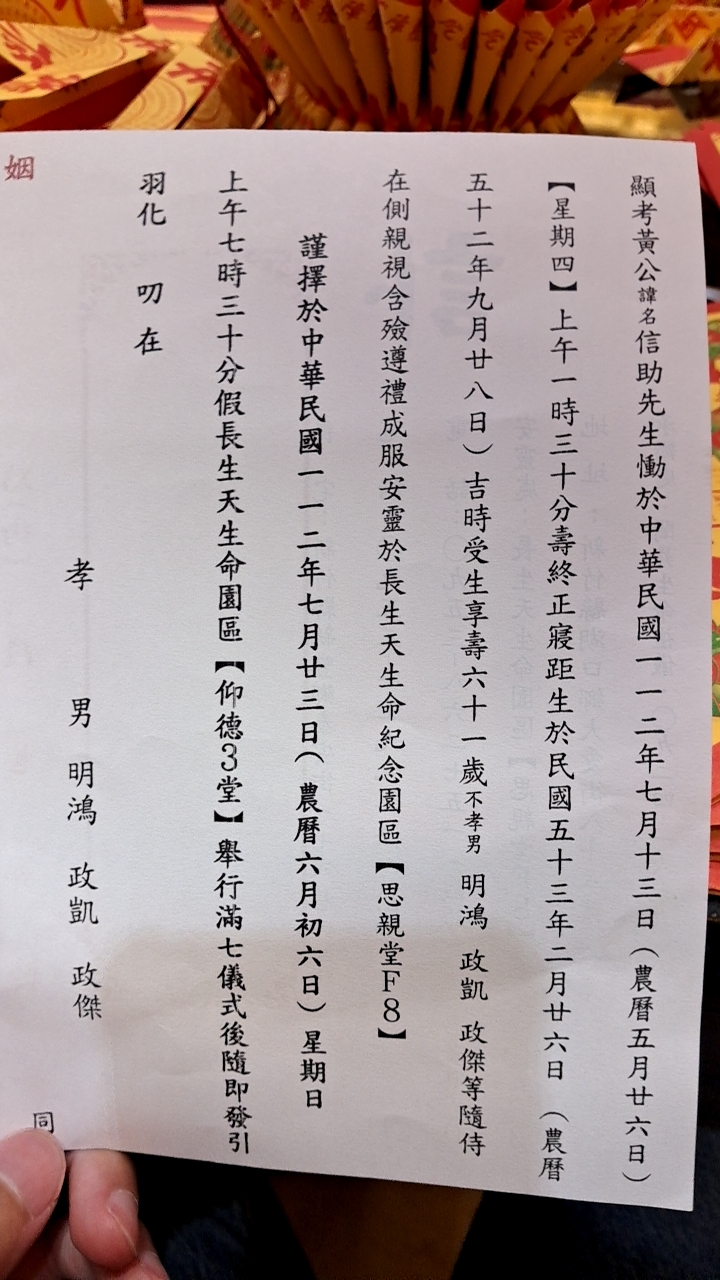 顯考黃公諱名信助先生慟於中華民國一一二年七月十三日（農曆五月廿六日）
【星期四】上午一時三十分壽終正寢距生於民國五十三年二月廿六日（農曆
五十二年九月廿八日）吉時受生享壽六十一歲不孝男 明鴻 政凱 政傑等隨侍
在側親視含殮遵禮成服安靈於長生天生命紀念園區【思親堂F8】
謹擇於中華民國一一二年七月廿三日（農曆六月初六日）星期日
上午七時三十分假長生天生命園區【仰德3堂】舉行滿七儀式後隨即發引
羽化 叨在
孝 男 明鴻 政凱 政傑
姻
同